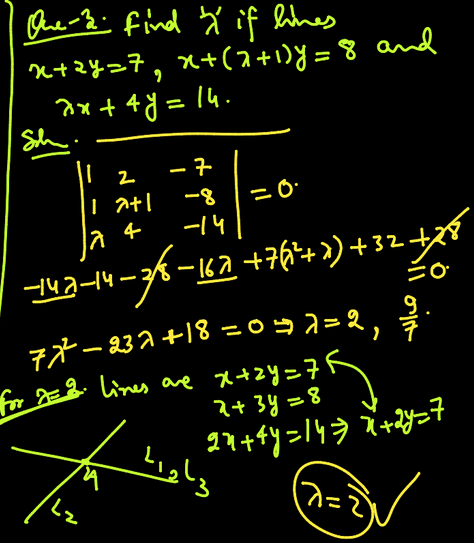 Que-2. Find 'λ' if lines
x+2y=7, x+(λ+1)y=8 and
λx+4y=14.
Soln.
|1 2 -7|
|1 λ+1 -8| =0.
|λ 4 -14|
-14λ-14-28-16λ+7(λ²+λ)+32+28
=0.
7λ²-23λ+18=0⇒λ=2, 9/7.
For λ=2. lines are x+2y=7
x+3y=8
2x+4y=14⇒x+2y=7
L₁, L₃
L₂
λ=2 ✓